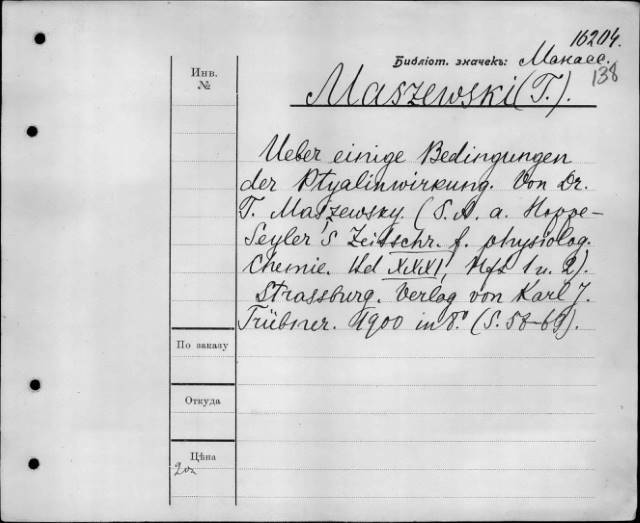 16204.
Библіот. значекъ: Манасс.
138
Инв.
№
Maszewski (T.).
Ueber einige Bedingungen
der Ptyalinwirkung. Von Dr.
T. Maszewsky. (S. A. a. Hoppe-
Seyler's Zeitschr. f. physiolog.
Chemie. Bd XXXI, Hft 1 u. 2).
Strassburg. Verlag von Karl J.
Trübner. 1900 in 8°. (S. 58-69).
По заказу
Откуда
Цѣна